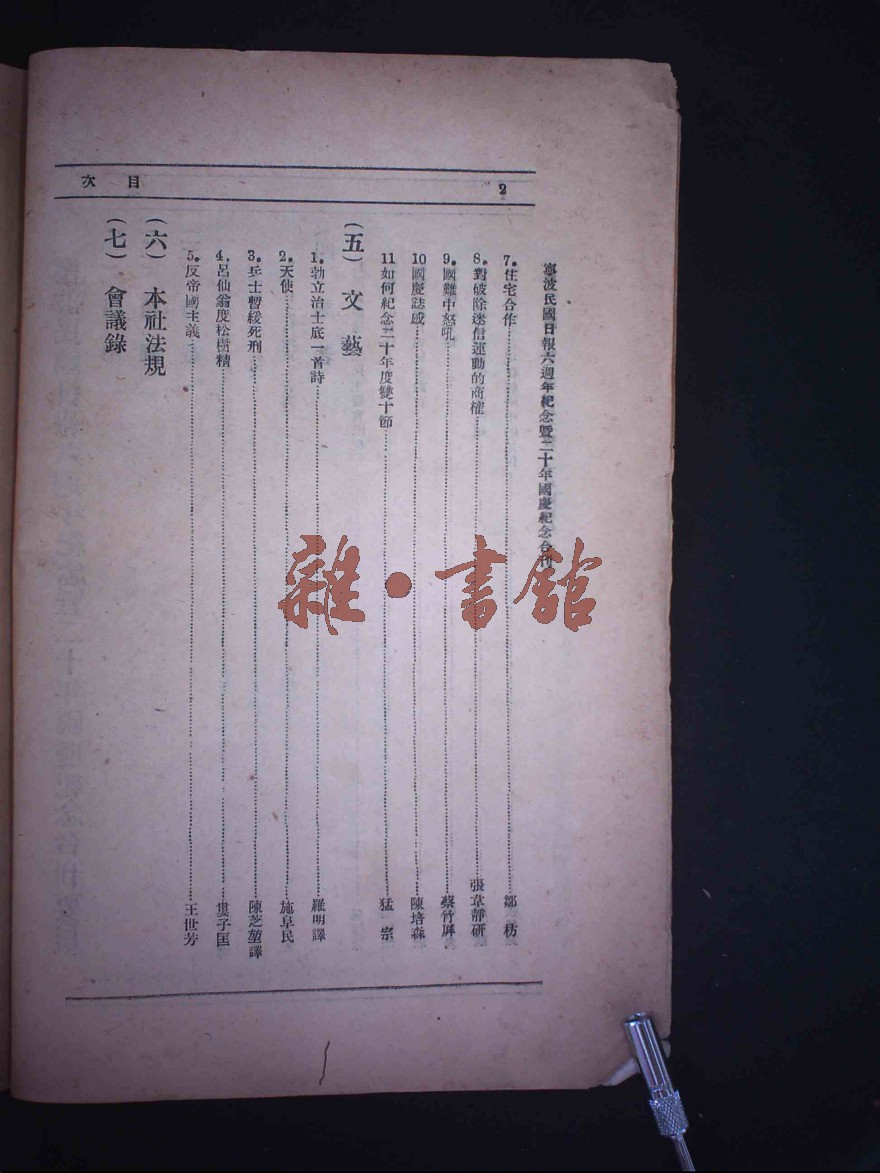 目次
2
寧波民國日報六週年紀念暨二十年國慶紀念合刊
7.住宅合作 鄒枋
8.對破除迷信運動的商榷 張韋靜研
9.國難中怒吼 蔡竹屏
10國慶誌感 陳培森
11如何紀念二十年度雙十節 猛宗
(五)文藝
1.勃立治士底一首詩 羅明譯
2.天使 施阜民
3.乒士暫緩死刑 陳芝堃譯
4.呂仙翁度松樹精 婁子匡
5.反帝國主義 王世芳
(六)本社法規
(七)會議錄
雜·書館